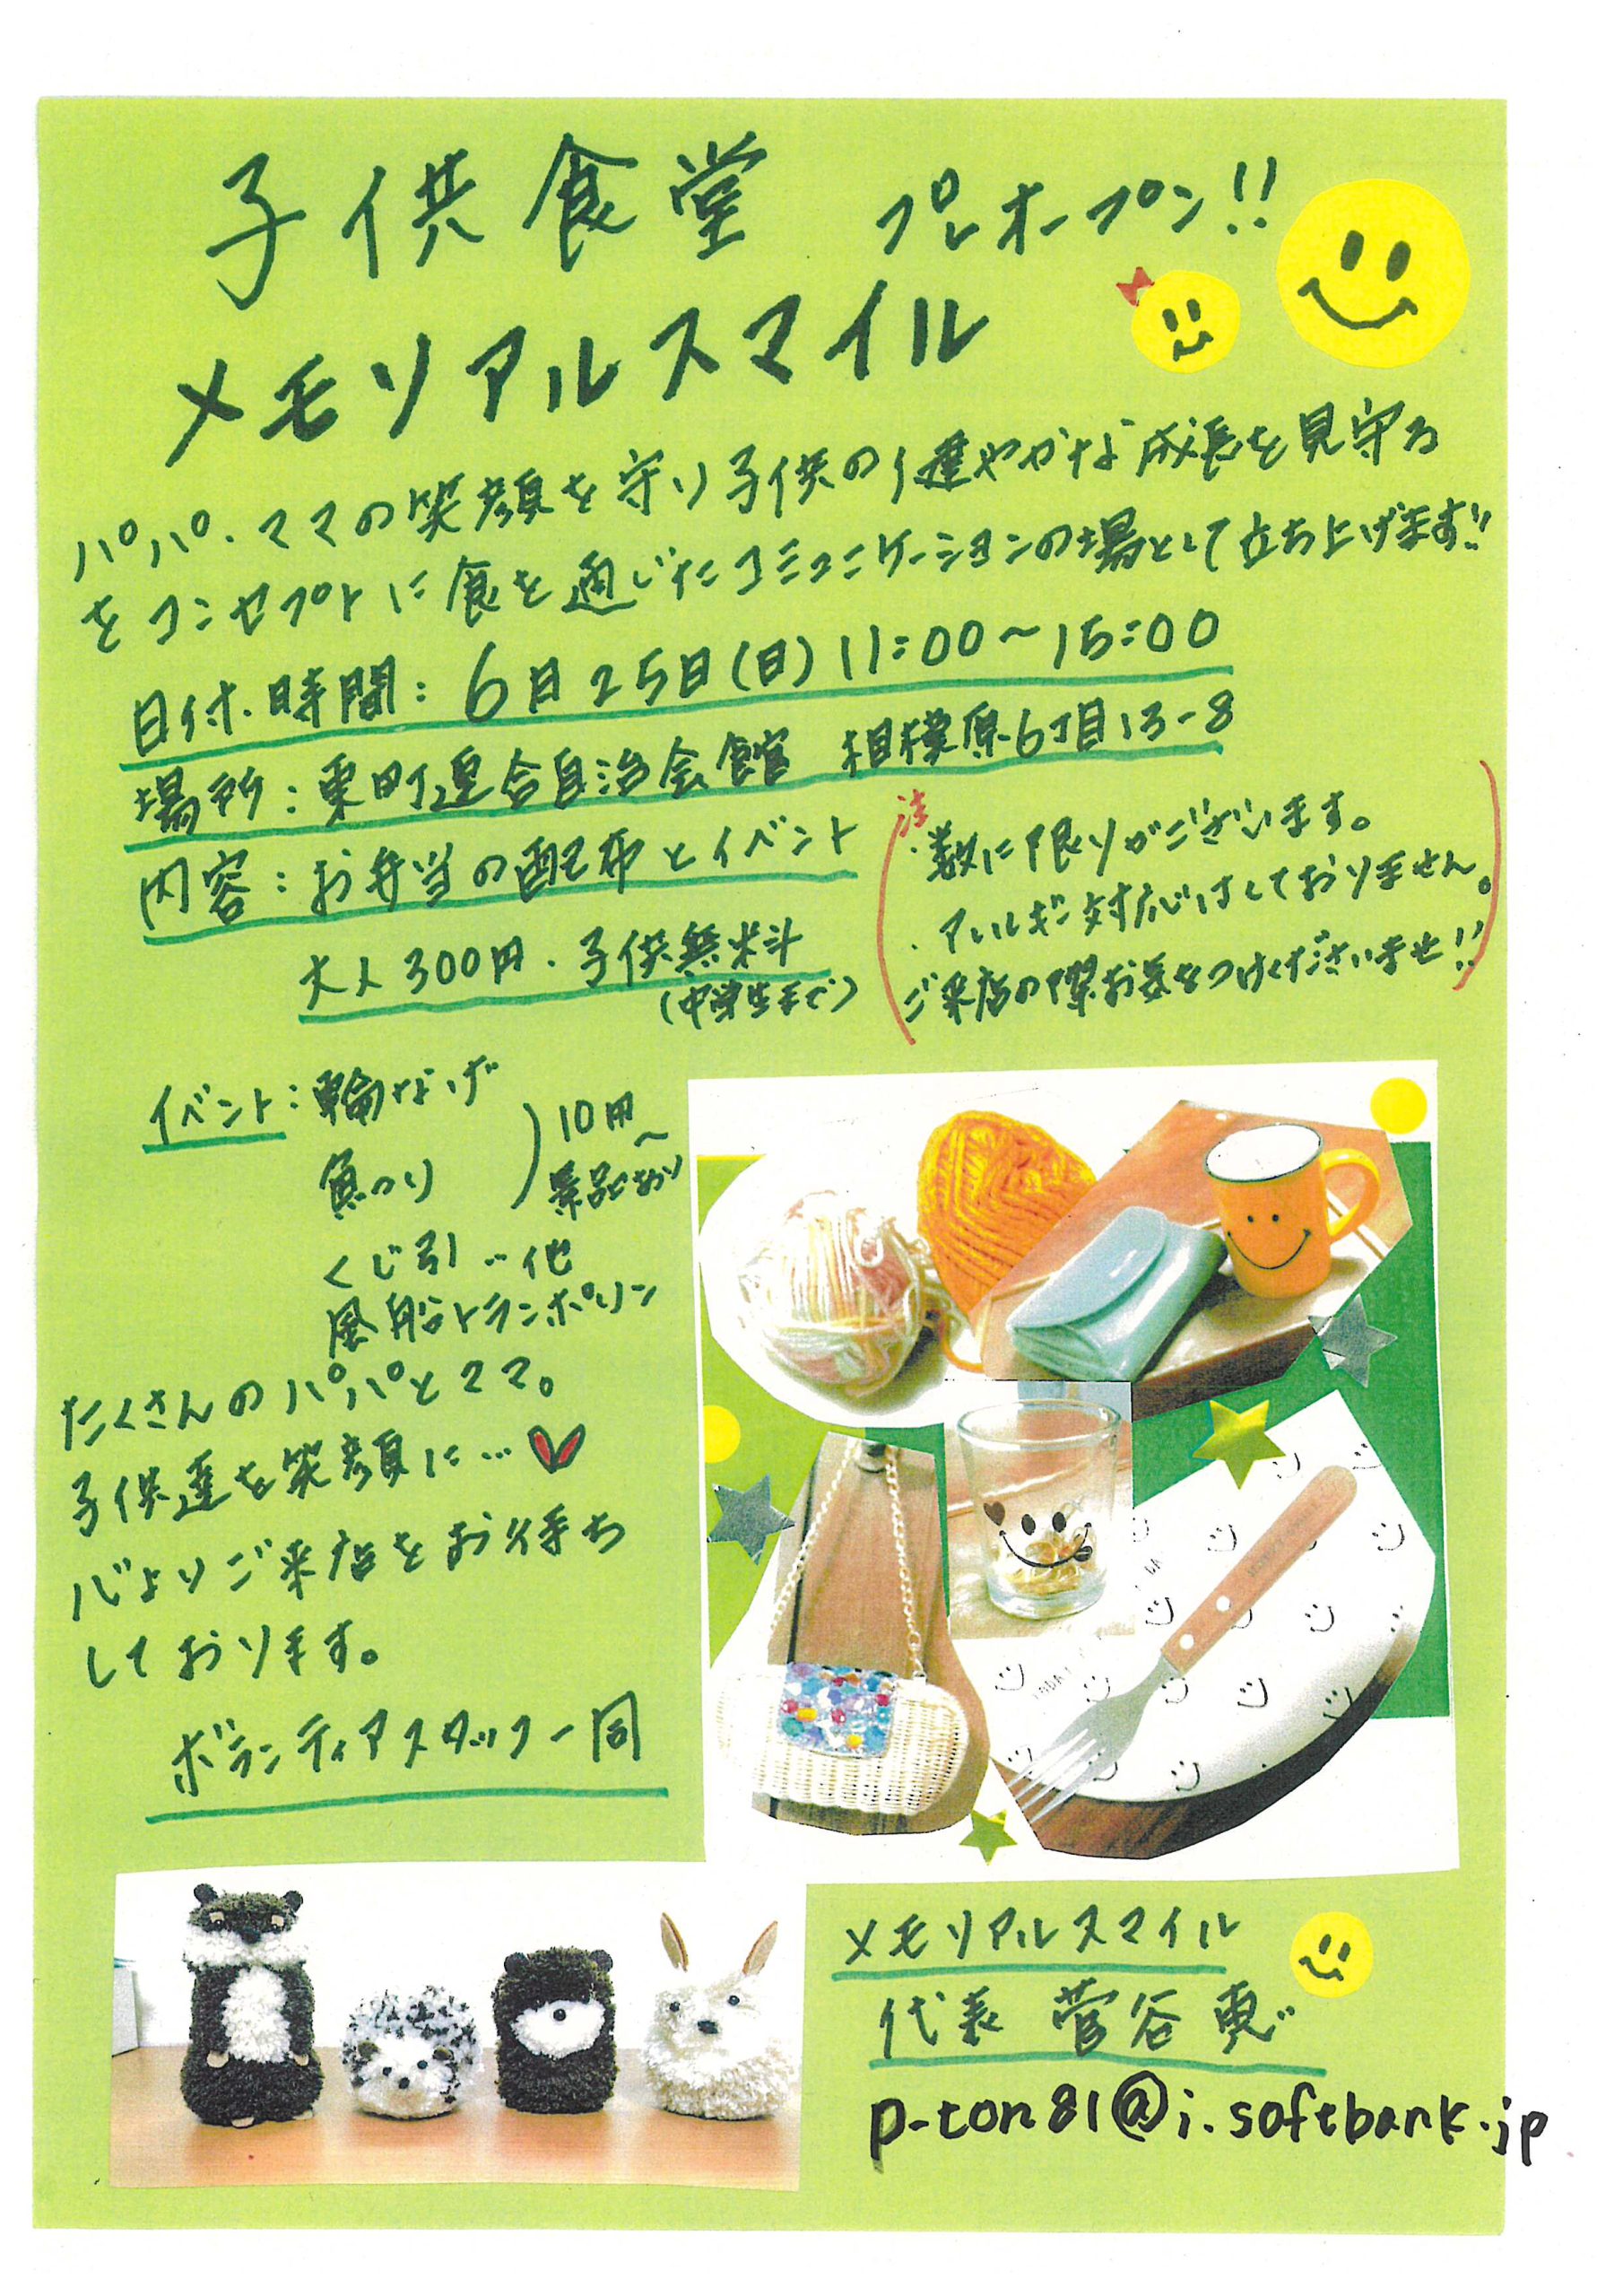 子供食堂 プレオープン!!
メモリアルスマイル
パパ・ママの笑顔を守り子供の健やかな成長を見守る
をコンセプトに食を通じたコミュニケーションの場として立ち上げます!!
日付・時間：6月25日(日) 11:00〜15:00
場所：東町連合自治会館 相模原6丁目13-8
内容：お弁当の配布とイベント
大人300円・子供無料
(中学生まで)
注
・数に限りがございます。
・アレルギー対応はしておりません。
ご来店の際お気をつけくださいませ!!
イベント：輪なげ
魚つり
10円〜
景品あり
くじ引…他
風船トランポリン
たくさんのパパとママ。
子供達を笑顔に…
心よりご来店をお待ち
しております。
ボランティアスタッフ一同
メモリアルスマイル
代表 菅谷 恵
p-ton81@i.softbank.jp